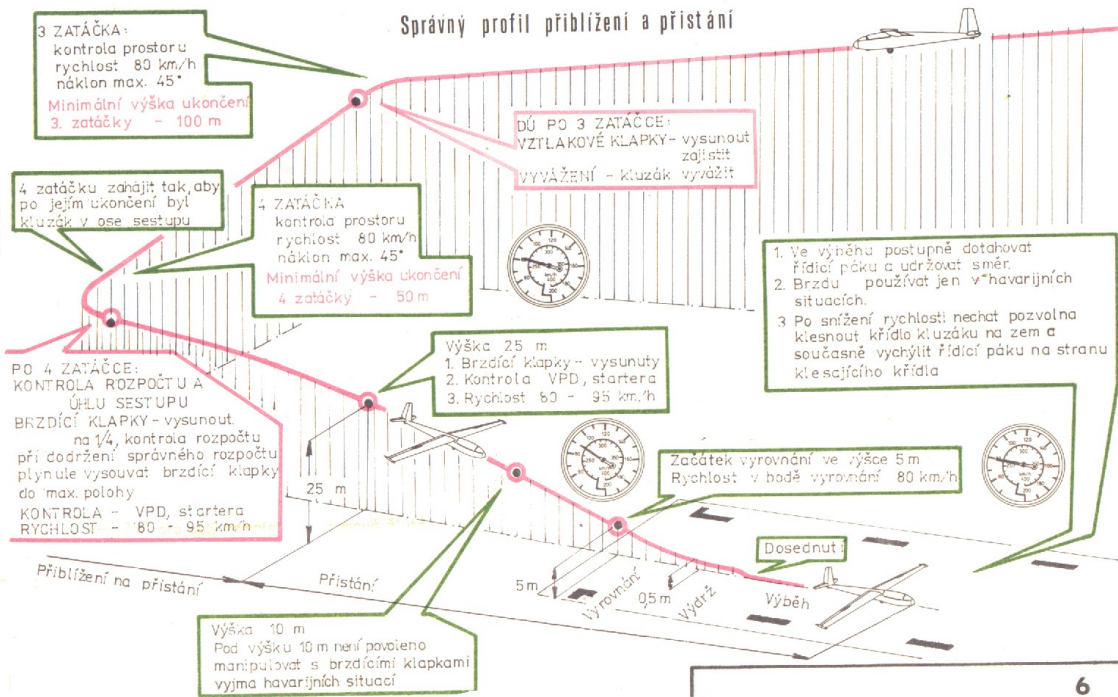 Správný profil přiblížení a přistání
3 ZATÁČKA:
kontrola prostoru
rychlost 80 km/h
náklon max. 45°
Minimální výška ukončení
3. zatáčky - 100 m
DÚ PO 3 ZATÁČCE:
VZTLAKOVÉ KLAPKY - vysunout
zajistit
VYVÁŽENÍ - kluzák vyvážit
4 zatáčku zahájit tak, aby
po jejím ukončení byl
kluzák v ose sestupu
4 ZATÁČKA
kontrola prostoru
rychlost 80 km/h
náklon max. 45°
Minimální výška ukončení
4 zatáčky - 50 m
1. Ve výběhu postupně dotahovat
řídicí páku a udržovat směr.
2. Brzdu používat jen v havarijních
situacích.
3 Po snížení rychlosti nechat pozvolna
klesnout křídlo kluzáku na zem a
současně vychýlit řídící páku na stranu
klesajícího křídla
PO 4 ZATÁČCE:
KONTROLA ROZPOČTU A
ÚHLU SESTUPU
BRZDÍCÍ KLAPKY - vysunout
na 1/4, kontrola rozpočtu
při dodržení správného rozpočtu
plynule vysouvat brzdící klapky
do max. polohy
KONTROLA - VPD, startera
RYCHLOST - 80 - 95 km/h
Výška 25 m
1. Brzdící klapky - vysunuty
2. Kontrola VPD, startera
3. Rychlost 80 - 95 km/h
Začátek vyrovnání ve výšce 5 m
Rychlost v bodě vyrovnání 80 km/h
25 m
Dosednutí
Přiblížení na přistání
Přistání
5 m
Vyrovnání
0,5 m
Výdrž
Výběh
Výška 10 m
Pod výšku 10 m není povoleno
manipulovat s brzdícími klapkami
vyjma havarijních situací
6